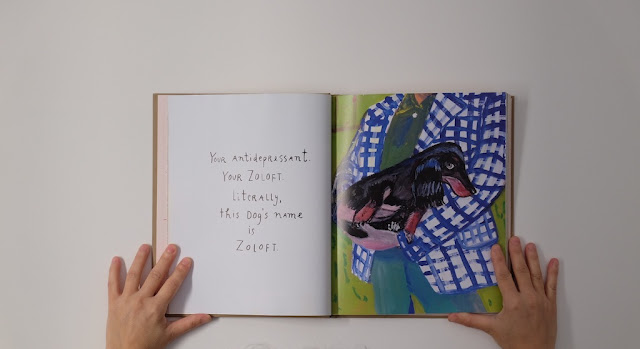 Your antidepressant.
Your Zoloft.
Literally,
this Dog's name
is
Zoloft.